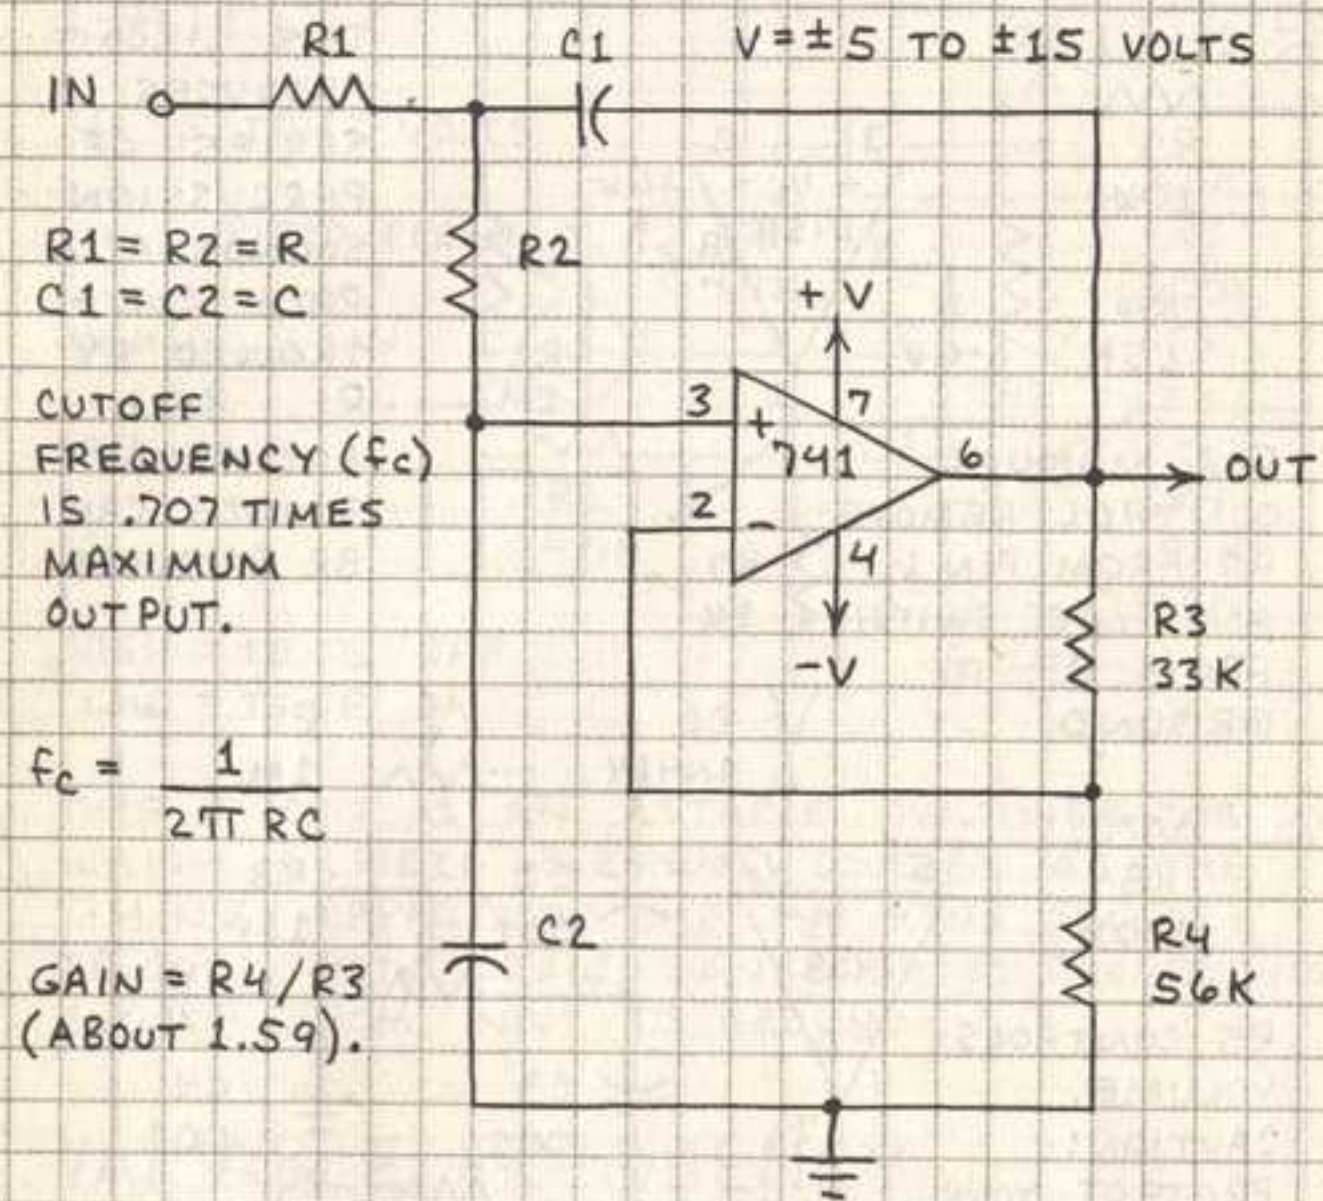 R1
C1
V = ± 5 TO ± 15 VOLTS
IN
R1 = R2 = R
C1 = C2 = C
R2
+ V
CUTOFF
FREQUENCY (fc)
IS .707 TIMES
MAXIMUM
OUTPUT.
3
+
7
741
6
OUT
2
-
4
-V
R3
33K
fc = 1
2π RC
C2
R4
56K
GAIN = R4/R3
(ABOUT 1.59).